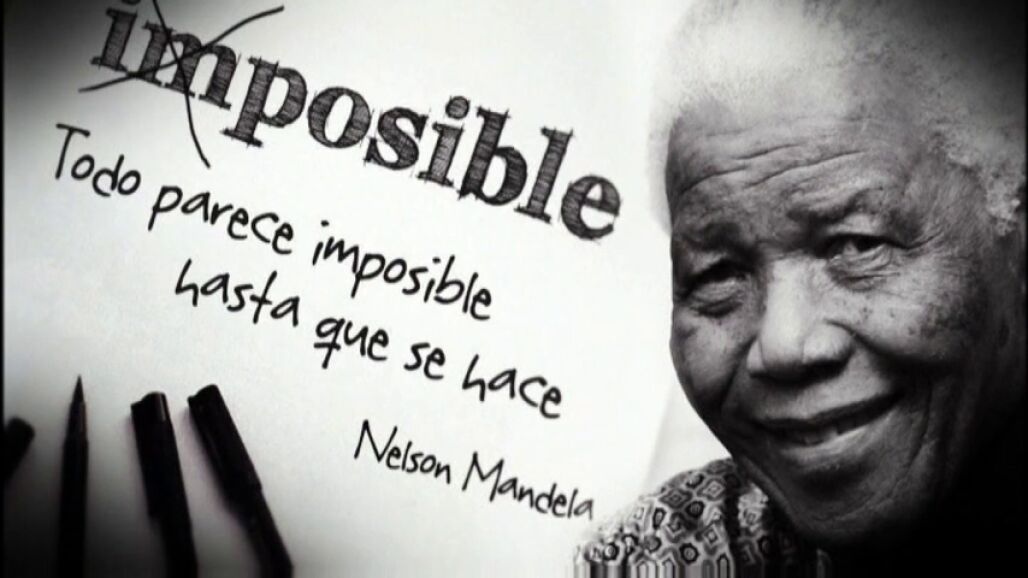 imposible
Todo parece imposible
hasta que se hace
Nelson Mandela